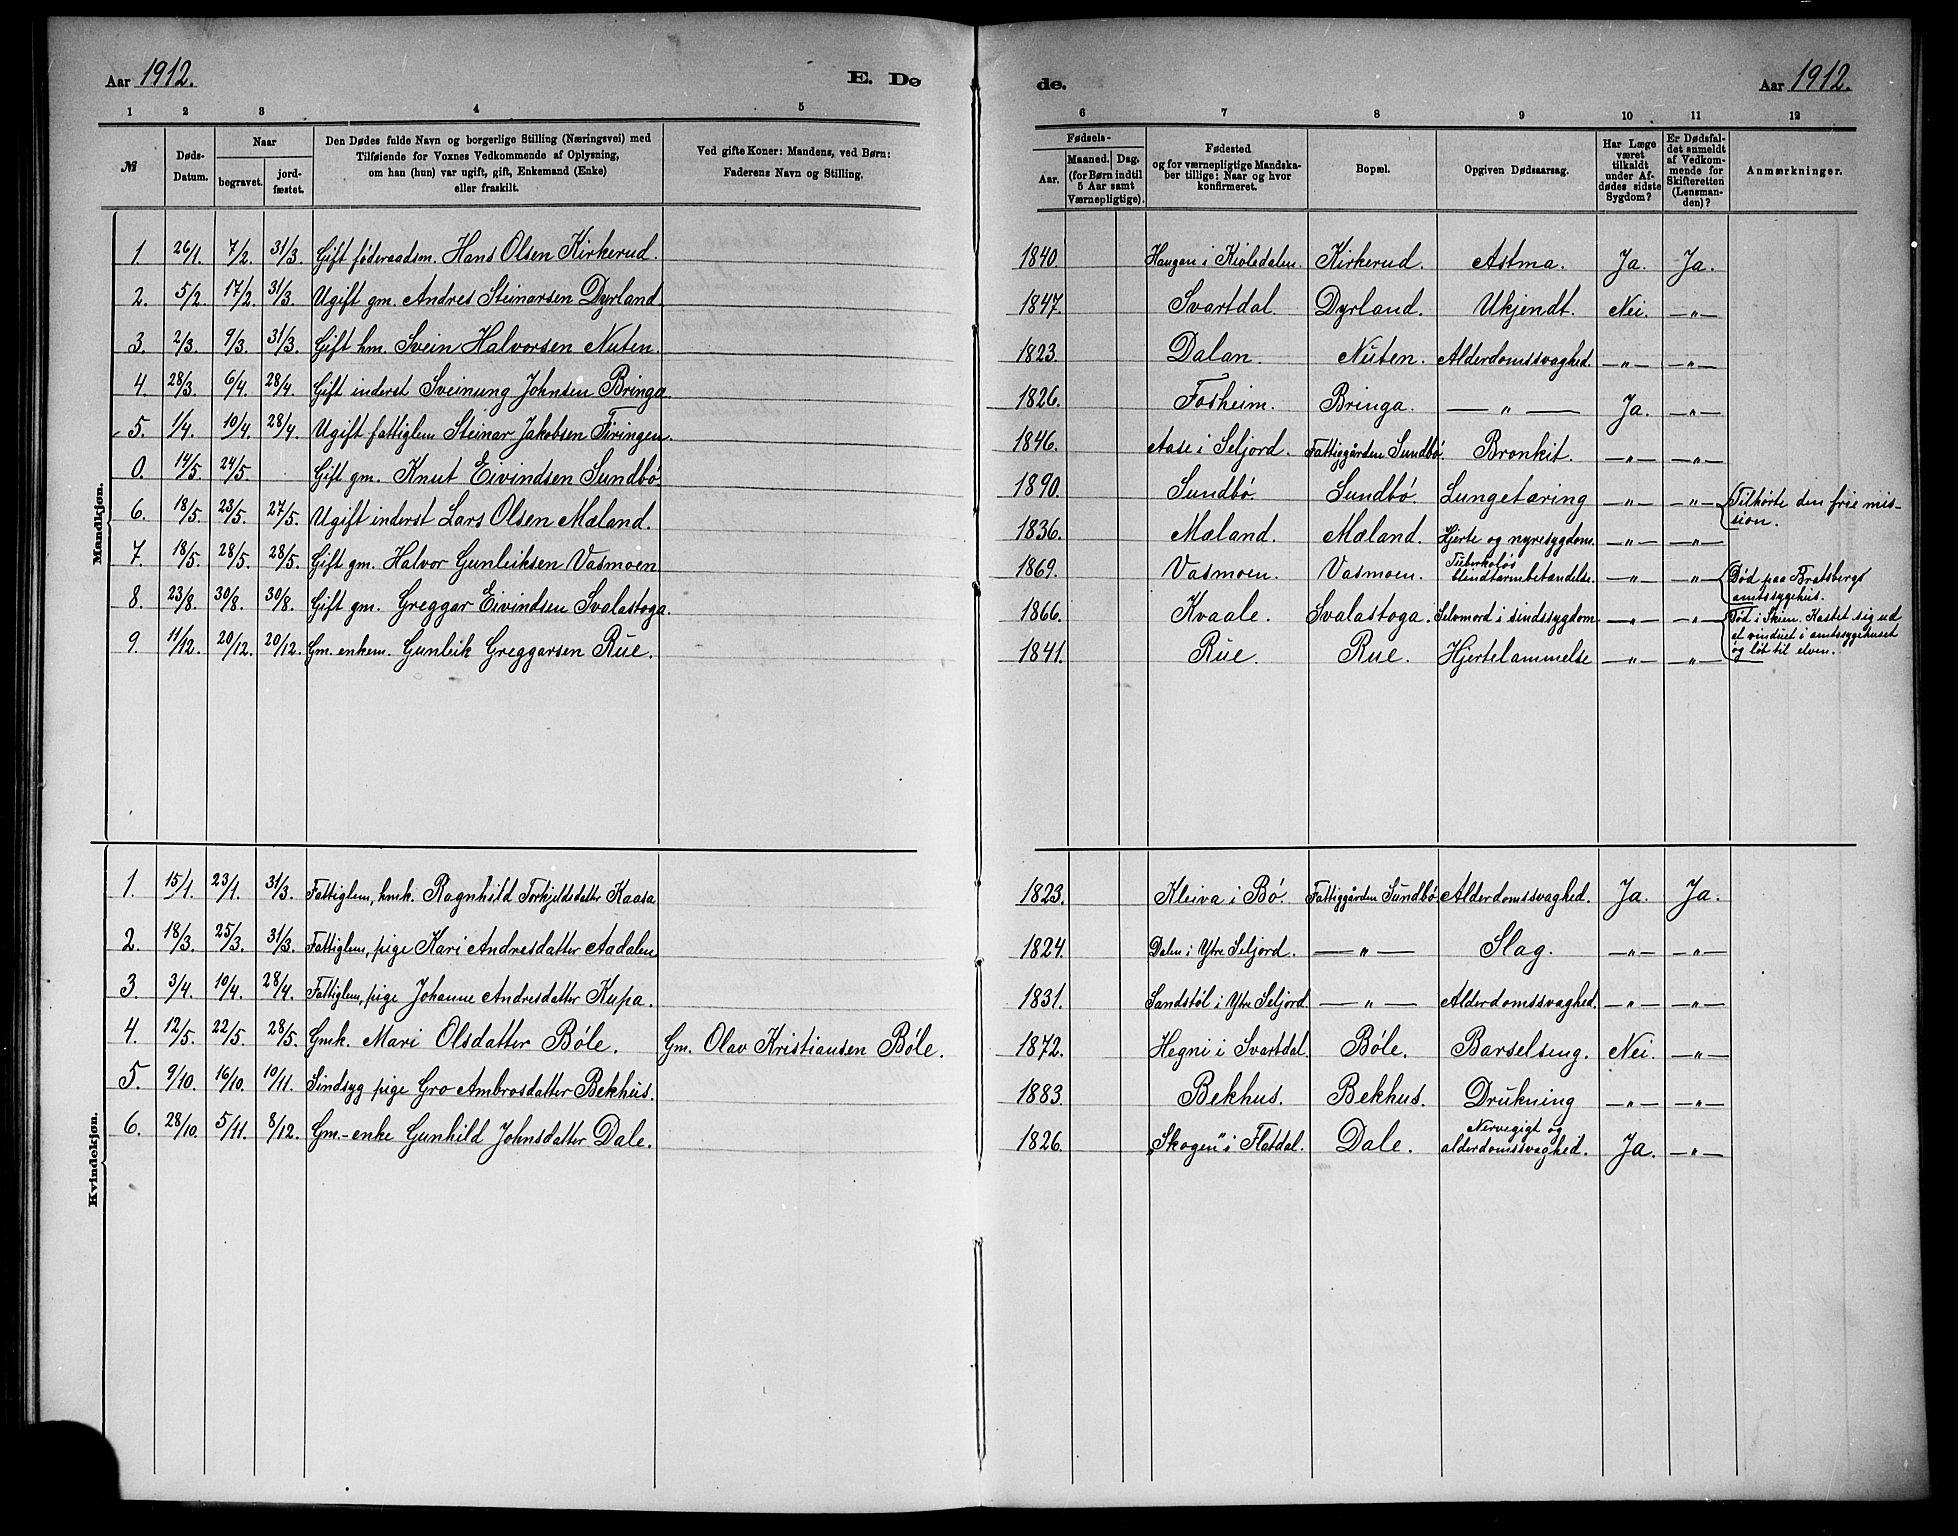 Aar 1912.
E. Dø
1 2 3 4 5
№
Døds-Datum.
Naar
begravet. jord-fæstet.
Den Dødes fulde Navn og borgerlige Stilling (Næringsvei) med
Tilføiende for Voxnes Vedkommende af Oplysning,
om han (hun) var ugift, gift, Enkemand (Enke)
eller fraskilt.
Ved gifte Koner: Mandens, ved Børn:
Faderens Navn og Stilling.
Mandkjøn.
1. 26/1. 7/2. 31/3. Gift føderaadsm. Hans Olsen Kirkerud.
2. 5/2 17/2. 31/3. Ugift gm. Andres Steinarsen Dyrland
3. 2/3. 9/3. 31/3. Gift hm. Svein Halvorsen Nuten.
4. 28/3. 6/4. 28/4. Gift inderst Sveinung Johnsen Bringa.
5. 1/4. 10/4. 28/4. Ugift fattiglem Steinar Jakobsen Firingen.
0. 14/5. 24/5. Gift gm. Knut Eivindsen Sundbö
6. 18/5. 23/5. 27/5. Ugift inderst Lars Olsen Mæland.
7. 18/5. 28/5. 28/5. Gift gm. Halvor Gunleiksen Vasmoen
8. 23/8. 30/8. 30/8. Gift gm. Greggar Eivindsen Svalastoga.
9. 11/12. 20/12. 20/12. Gm. enkem. Gunleik Greggarsen Rue.
Kvindekjøn.
1. 15/1. 23/1. 31/3. Fattiglem, hmk. Ragnhild Torkjeldsdatter Kaasa
2. 18/3. 25/3. 31/3. Fattiglem, pige Kari Andresdatter Aadalen
3. 3/4. 10/4. 28/4. Fattiglem, pige Johanne Andresdatter Kupa.
4. 12/5. 22/5. 28/5. Gmk. Mari Olsdatter Böle. Gm. Olav Kristiansen Böle.
5. 9/10. 16/10. 10/11. Sindsyg pige Gro Ambrosdatter Bekhus.
6. 28/10. 5/11. 8/12. Gm.-enke Gunhild Johnsdatter Dale.
de.
Aar 1912.
6 7 8 9 10 11 12
Fødsels-
Aar.
Maaned. Dag.
(for Børn indtil
5 Aar samt
Værnepligtige).
Fødested
og for værnepligtige Mandska-
ber tillige: Naar og hvor
konfirmeret.
Bopæl.
Opgiven Dødsaarsag.
Har Læge
været
tilkaldt
under Af-
dødes sidste
Sygdom?
Er Dødsfal-
det anmeldt
af Vedkom-
mende for
Skifteretten
(Lensman-
den)?
Anmærkninger.
1840. Haugen i Kivledalen. Kirkerud. Astma. Ja. Ja.
1847. Svartdal. Dyrland. Ukjendt. Nei. —"—
1823. Dalan. Nuten. Alderdomssvaghed. —"— —"—
1826. Fosheim. Bringa. —"— Ja. —"—
1846. Aase i Seljord. Fattiggården Sundbö. Bronkit. —"— —"—
1890. Sundbö. Sundbö. Lungetæring —"— —"— Tilhörte den frie mis-
sion.
1836. Mæland. Mæland. Hjerte og nyresygdom. —"— —"—
1869. Vasmoen. Vasmoen. Tuberkulös
blindtarmbetændelse. —"— —"— Död paa Bratsberg
amtssygehus.
1866. Kvaale. Svalastoga. Selvmord i sindssygdom. —"— —"— Död i Skien. Kastet sig ud
et vinduet i amtssygehuset
og löt til elven.
1841. Rue. Rue. Hjertelammelse —"— —"—
1823. Kleiva i Bö. Fattiggården Sundbö Alderdomssvaghed. Ja. Ja.
1824. Dalen i Ytre Seljord. —"— Slag. —"— —"—
1831. Sandstöl i Ytre Seljord. —"— Alderdomssvaghed. —"— —"—
1872. Hegni i Svartdal. Böle. Barselseng. Nei. —"—
1883. Bekhus. Bekhus. Drukning —"— —"—
1826. „Skogen" i Flatdal. Dale. Nervegigt og
alderdomssvaghed. Ja. —"—